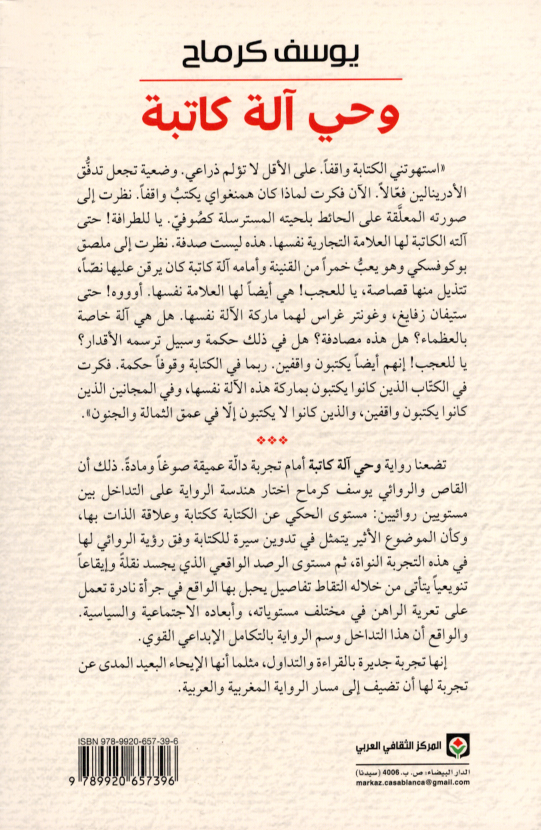 يوسف كرماح
وحي آلة كاتبة
«استهوتني الكتابة واقفاً. على الأقل لا تؤلم ذراعي. وضعية تجعل تدفُّق
الأدرينالين فعّالاً. الآن فكرت لماذا كان همنغواي يكتبُ واقفاً. نظرت إلى
صورته المعلَّقة على الحائط بلحيته المسترسلة كصُوفيّ. يا للطرافة! حتى
آلته الكاتبة لها العلامة التجارية نفسها. هذه ليست صدفة. نظرت إلى ملصق
بوكوفسكي وهو يعبُّ خمراً من القنينة وأمامه آلة كاتبة كان يرقن عليها نصّاً،
تتذيل منها قصاصة، يا للعجب! هي أيضاً لها العلامة نفسها. أوووه! حتى
ستيفان زفايغ، وغونتر غراس لهما ماركة الآلة نفسها. هل هي آلة خاصة
بالعظماء؟ هل هذه مصادفة؟ هل في ذلك حكمة وسبيل ترسمه الأقدار؟
يا للعجب! إنهم أيضاً يكتبون واقفين. ربما في الكتابة وقوفاً حكمة. فكرت
في الكتّاب الذين كانوا يكتبون بماركة هذه الآلة نفسها، وفي المجانين الذين
كانوا يكتبون واقفين، والذين كانوا لا يكتبون إلّا في عمق الثمالة والجنون».
تضعنا رواية وحي آلة كاتبة أمام تجربة دالّة عميقة صوغاً ومادة. ذلك أن
القاص والروائي يوسف كرماح اختار هندسة الرواية على التداخل بين
مستويين روائيين: مستوى الحكي عن الكتابة ككتابة وعلاقة الذات بها،
وكأن الموضوع الأثير يتمثل في تدوين سيرة للكتابة وفق رؤية الروائي لها
في هذه التجربة النواة، ثم مستوى الرصد الواقعي الذي يجسد نقلةً وإيقاعاً
تنويعياً يتأتى من خلاله التقاط تفاصيل يحبل بها الواقع في جرأة نادرة تعمل
على تعرية الراهن في مختلف مستوياته، وأبعاده الاجتماعية والسياسية.
والواقع أن هذا التداخل وسم الرواية بالتكامل الإبداعي القوي.
إنها تجربة جديرة بالقراءة والتداول، مثلما أنها الإيحاء البعيد المدى عن
تجربة لها أن تضيف إلى مسار الرواية المغربية والعربية.
ISBN 978-9920-657-39-6
9 789920 657396
المركز الثقافي العربي
الدار البيضاء: ص. ب. 4006 (سيدنا)
markaz.casablanca@gmail.com